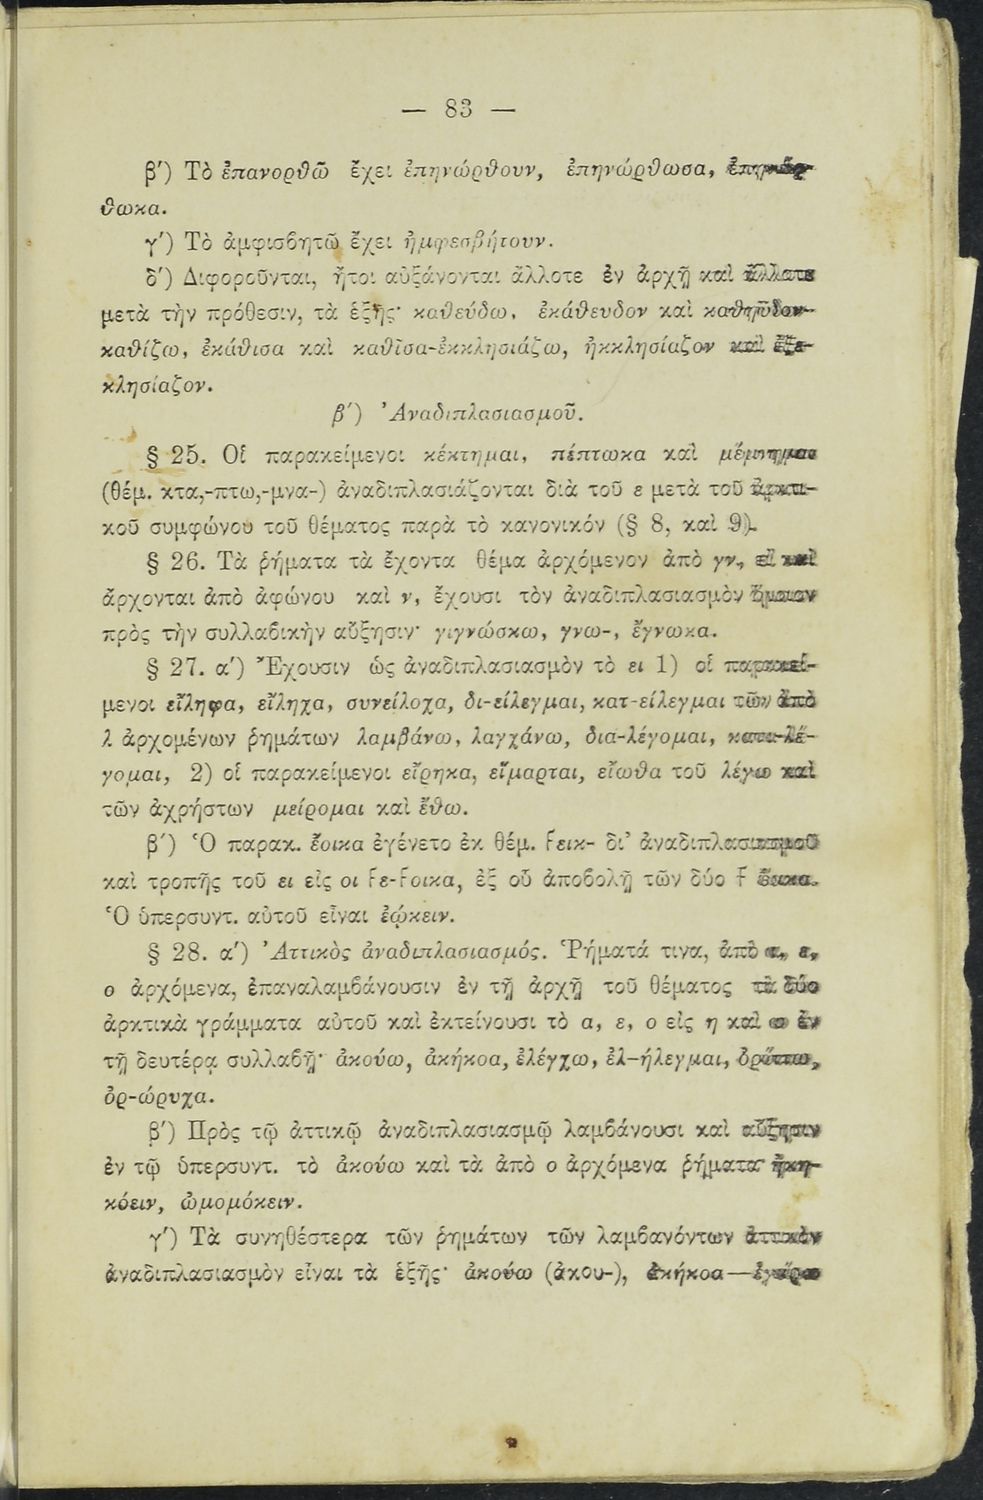 — 83 —
β′) Τὸ ἐπανορθῶ ἔχει ἐπηνώρθουν, ἐπηνώρθωσα, ἐπηνώρ-
θωκα.
γ′) Τὸ ἀμφισβητῶ ἔχει ἠμφεσβήτουν.
δ′) Διφοροῦνται, ἤτοι αὐξάνονται ἄλλοτε ἐν ἀρχῇ καὶ ἄλλοτε
μετὰ τὴν πρόθεσιν, τὰ ἑξῆς· καθεύδω, ἐκάθευδον καὶ καθηῦδον-
καθίζω, ἐκάθισα καὶ καθῖσα-ἐκκλησιάζω, ἠκκλησίαζον καὶ ἐξε-
κλησίαζον.
β′) Ἀναδιπλασιασμοῦ.
§ 25. Οἱ παρακείμενοι κέκτημαι, πέπτωκα καὶ μέμνημαι
(θέμ. κτα,-πτω,-μνα-) ἀναδιπλασιάζονται διὰ τοῦ ε μετὰ τοῦ ἀρκτι-
κοῦ συμφώνου τοῦ θέματος παρὰ τὸ κανονικόν (§ 8, καὶ 9).
§ 26. Τὰ ῥήματα τὰ ἔχοντα θέμα ἀρχόμενον ἀπὸ γν, εἰ καὶ
ἄρχονται ἀπὸ ἀφώνου καὶ ν, ἔχουσι τὸν ἀναδιπλασιασμὸν ὅμοιον
πρὸς τὴν συλλαβικὴν αὔξησιν· γιγνώσκω, γνω-, ἔγνωκα.
§ 27. α′) Ἔχουσιν ὡς ἀναδιπλασιασμὸν τὸ ει 1) οἱ παρακεί-
μενοι εἴληφα, εἴληχα, συνείλοχα, δι-είλεγμαι, κατ-είλεγμαι τῶν ἀπὸ
λ ἀρχομένων ῥημάτων λαμβάνω, λαγχάνω, δια-λέγομαι, κατα-λέ-
γομαι, 2) οἱ παρακείμενοι εἴρηκα, εἵμαρται, εἴωθα τοῦ λέγω καὶ
τῶν ἀχρήστων μείρομαι καὶ ἔθω.
β′) Ὁ παρακ. ἔοικα ἐγένετο ἐκ θέμ. Fεικ- δι' ἀναδιπλασιασμοῦ
καὶ τροπῆς τοῦ ει εἰς οι Fε-Fοικα, ἐξ οὗ ἀποβολῇ τῶν δύο F ἔοικα.
Ὁ ὑπερσυντ. αὐτοῦ εἶναι ἐῴκειν.
§ 28. α′) Ἀττικὸς ἀναδιπλασιασμός. Ῥήματά τινα, ἀπὸ α, ε,
ο ἀρχόμενα, ἐπαναλαμβάνουσιν ἐν τῇ ἀρχῇ τοῦ θέματος τὰ δύο
ἀρκτικὰ γράμματα αὐτοῦ καὶ ἐκτείνουσι τὸ α, ε, ο εἰς η καὶ ω ἐν
τῇ δευτέρᾳ συλλαβῇ· ἀκούω, ἀκήκοα, ἐλέγχω, ἐλ-ήλεγμαι, ὀρύττω,
ὀρ-ώρυχα.
β′) Πρὸς τῷ ἀττικῷ ἀναδιπλασιασμῷ λαμβάνουσι καὶ αὔξησιν
ἐν τῷ ὑπερσυντ. τὸ ἀκούω καὶ τὰ ἀπὸ ο ἀρχόμενα ῥήματα· ἠκη-
κόειν, ὠμομόκειν.
γ′) Τὰ συνηθέστερα τῶν ῥημάτων τῶν λαμβανόντων ἀττικὸν
ἀναδιπλασιασμὸν εἶναι τὰ ἑξῆς· ἀκούω (ἀκου-), ἀκήκοα—ἐγείρω